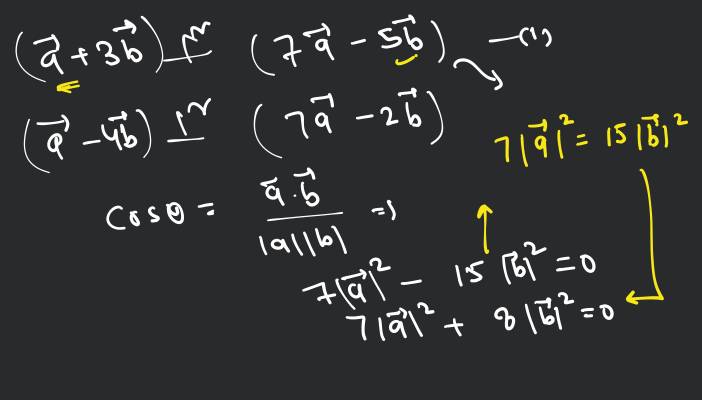 (a⃗ + 3b⃗) ⊥r (7a⃗ - 5b⃗) —(1)
(a⃗ - 4b⃗) ⊥r (7a⃗ - 2b⃗)
7|a⃗|² = 15|b⃗|²
cosθ = a⃗.b⃗ / |a||b| ⇒
7|a⃗|² - 15|b⃗|² = 0
7|a⃗|² + 8|b⃗|² = 0